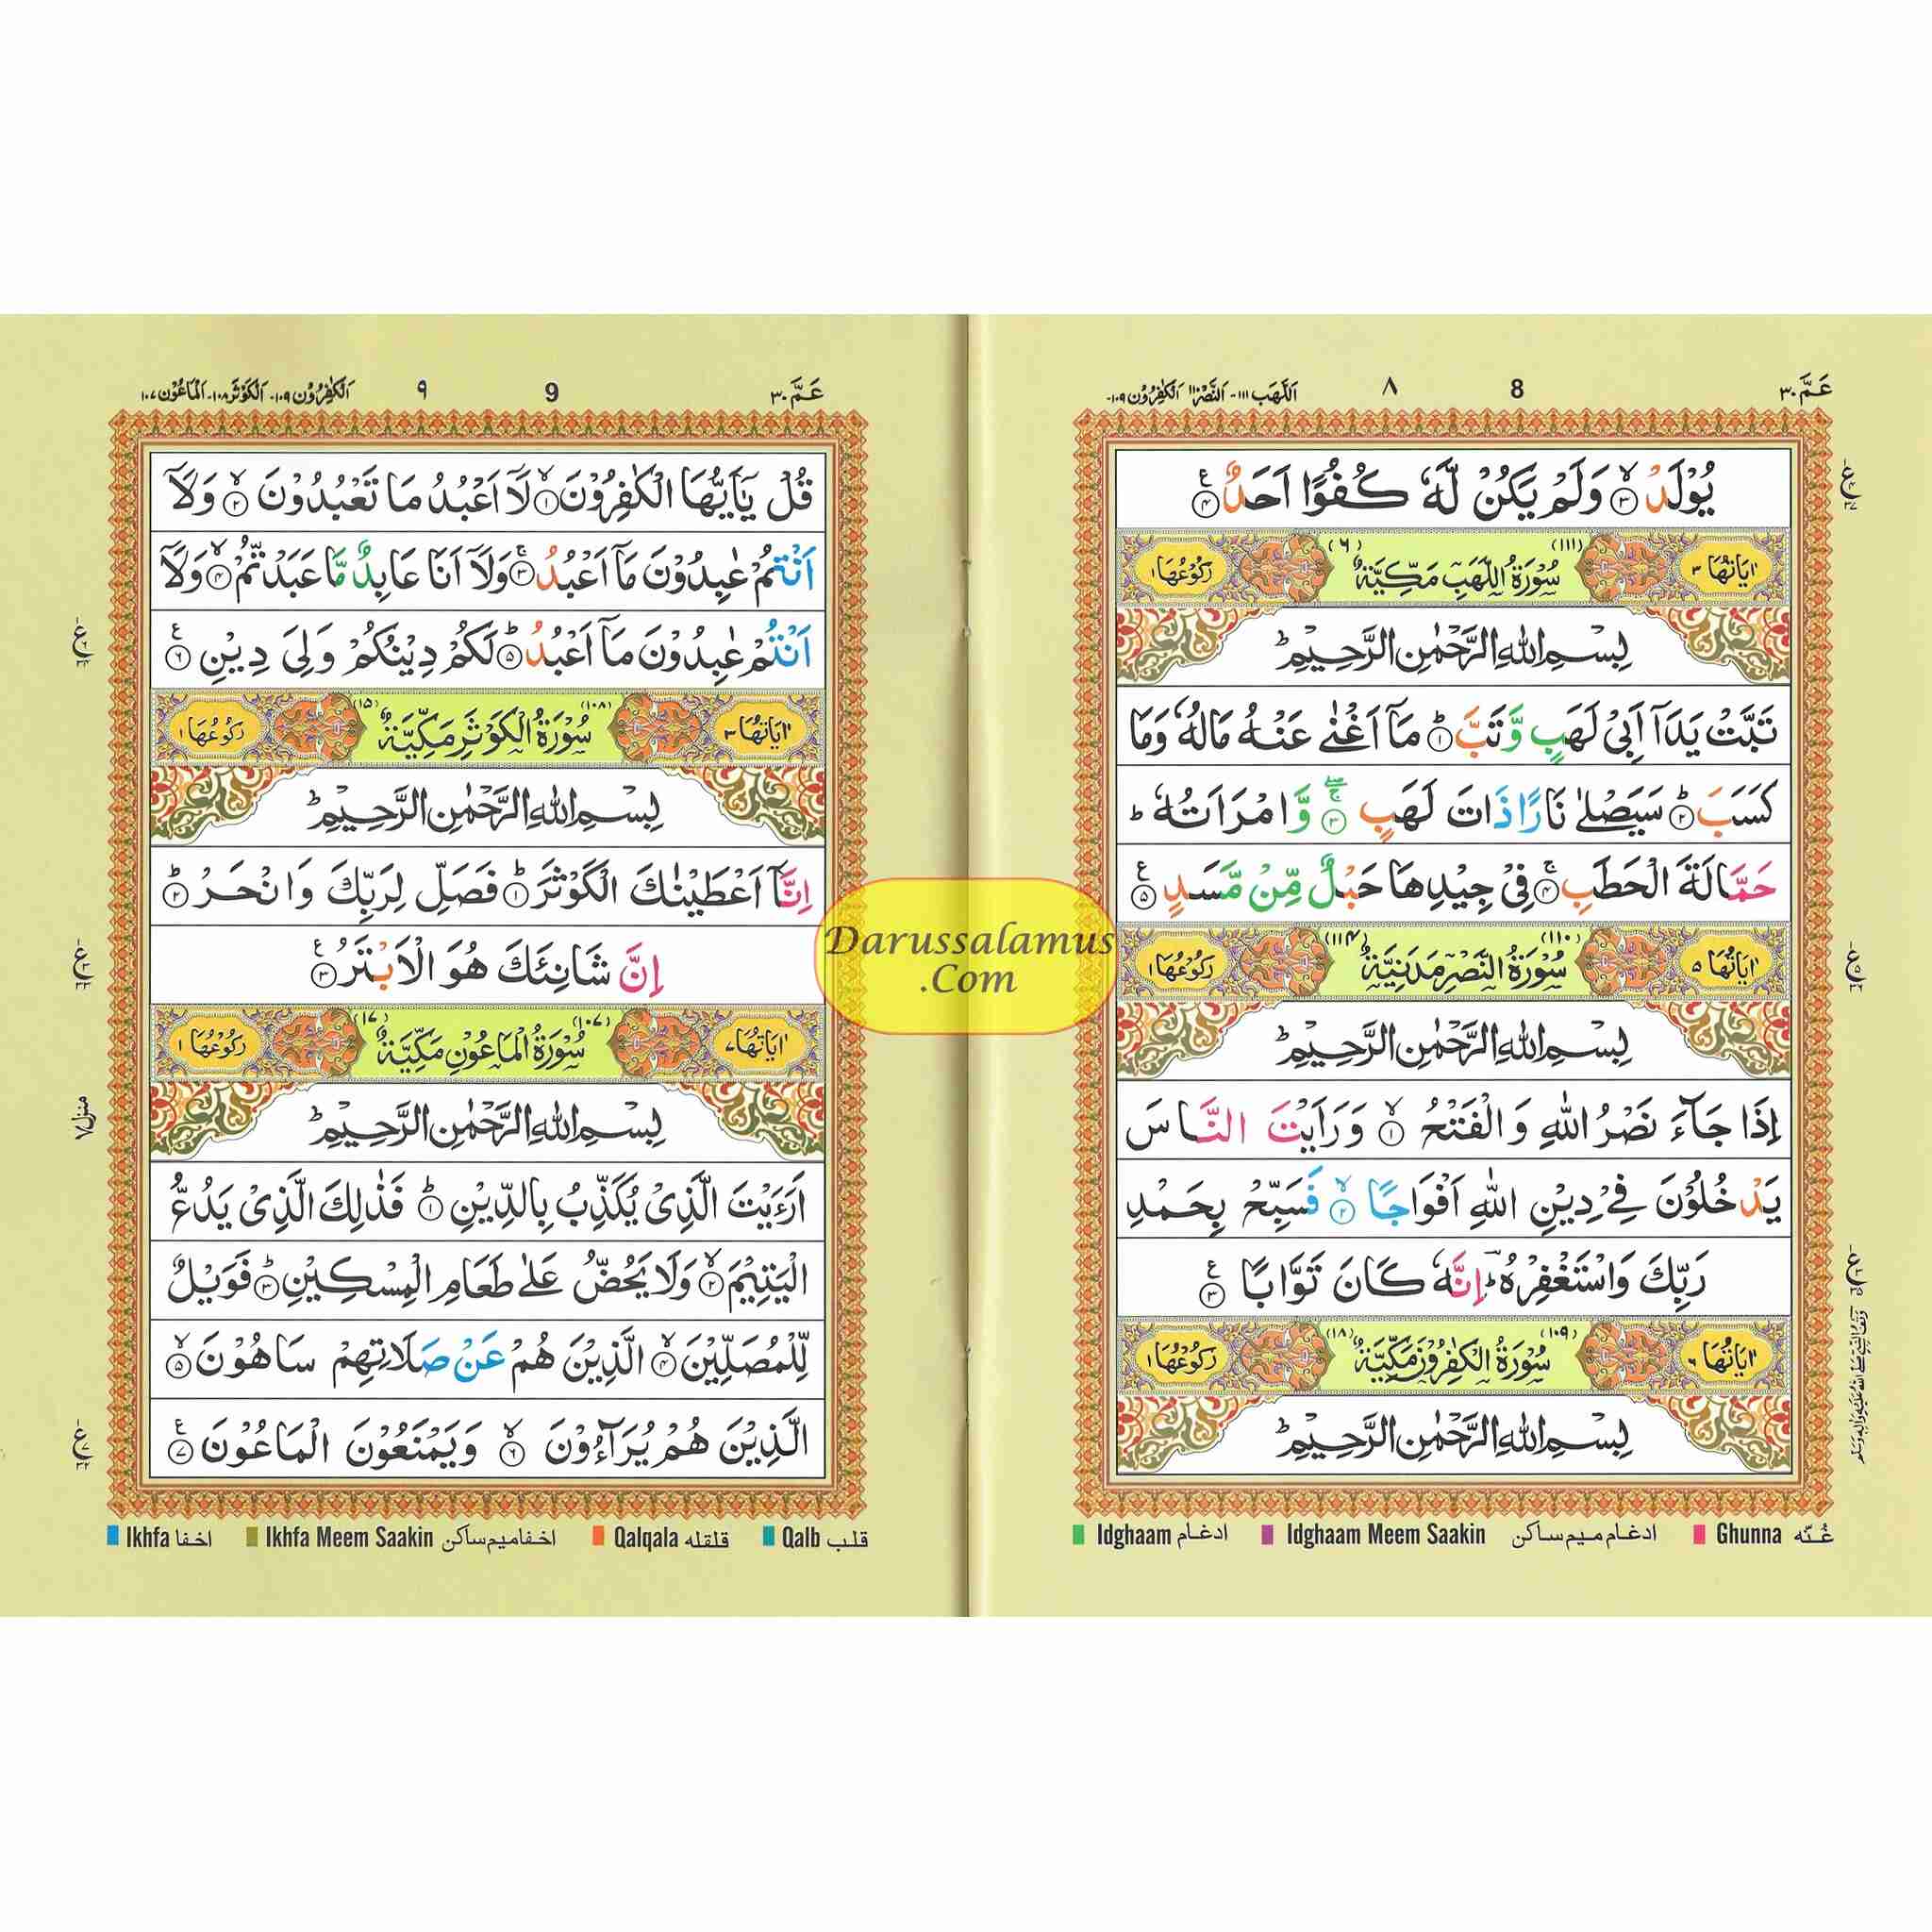 عَمَّ ٣٠ 8 ٨ اَللَّهَب ١١١- اَلنَّصْر ١١٠ اَلْكٰفِرُوْن ١٠٩-
يُوْلَدْ ۙ﴿٣﴾ وَلَمْ يَكُنْ لَّهٗ كُفُوًا اَحَدٌ ﴿٤﴾
اٰيَاتُهَا ٣ (١١١) سُوْرَةُ اللَّهَبِ مَكِّيَّةٌ (٦) رَكُوْعُهَا ١
بِسْمِ اللّٰهِ الرَّحْمٰنِ الرَّحِيْمِ ؕ
تَبَّتْ يَدَآ اَبِيْ لَهَبٍ وَّتَبَّ ؕ﴿١﴾ مَآ اَغْنٰى عَنْهُ مَالُهٗ وَمَا
كَسَبَ ؕ﴿٢﴾ سَيَصْلٰى نَارًا ذَاتَ لَهَبٍ ۚۖ﴿٣﴾ وَّامْرَاَتُهٗ ؕ
حَمَّالَةَ الْحَطَبِ ۚ﴿٤﴾ فِيْ جِيْدِهَا حَبْلٌ مِّنْ مَّسَدٍ ﴿٥﴾
اٰيَاتُهَا ٥ (١١٠) سُوْرَةُ النَّصْرِ مَدَنِيَّةٌ (١١٤) رَكُوْعُهَا ١
بِسْمِ اللّٰهِ الرَّحْمٰنِ الرَّحِيْمِ ؕ
اِذَا جَآءَ نَصْرُ اللّٰهِ وَالْفَتْحُ ۙ﴿١﴾ وَرَاَيْتَ النَّاسَ
يَدْخُلُوْنَ فِيْ دِيْنِ اللّٰهِ اَفْوَاجًا ۙ﴿٢﴾ فَسَبِّحْ بِحَمْدِ
رَبِّكَ وَاسْتَغْفِرْهُ ؕ اِنَّهٗ كَانَ تَوَّابًا ﴿٣﴾
اٰيَاتُهَا ٦ (١٠٩) سُوْرَةُ الْكٰفِرُوْنَ مَكِّيَّةٌ (١٨) رَكُوْعُهَا ١
بِسْمِ اللّٰهِ الرَّحْمٰنِ الرَّحِيْمِ ؕ
Idghaam ادغام Idghaam Meem Saakin ادغام میم ساکن Ghunna غُنّه
عَمَّ ٣٠ 9 ٩ اَلْكٰفِرُوْن ١٠٩- اَلْكَوْثَر ١٠٨- اَلْمَاعُوْن ١٠٧
قُلْ يٰٓاَيُّهَا الْكٰفِرُوْنَ ۙ﴿١﴾ لَآ اَعْبُدُ مَا تَعْبُدُوْنَ ۙ﴿٢﴾ وَلَآ
اَنْتُمْ عٰبِدُوْنَ مَآ اَعْبُدُ ۚ﴿٣﴾ وَلَآ اَنَا عَابِدٌ مَّا عَبَدْتُّمْ ۙ﴿٤﴾ وَلَآ
اَنْتُمْ عٰبِدُوْنَ مَآ اَعْبُدُ ؕ﴿٥﴾ لَكُمْ دِيْنُكُمْ وَلِيَ دِيْنِ ﴿٦﴾
اٰيَاتُهَا ٣ (١٠٨) سُوْرَةُ الْكَوْثَرِ مَكِّيَّةٌ (١٥) رَكُوْعُهَا ١
بِسْمِ اللّٰهِ الرَّحْمٰنِ الرَّحِيْمِ ؕ
اِنَّآ اَعْطَيْنٰكَ الْكَوْثَرَ ؕ﴿١﴾ فَصَلِّ لِرَبِّكَ وَانْحَرْ ؕ﴿٢﴾
اِنَّ شَانِئَكَ هُوَ الْاَبْتَرُ ﴿٣﴾
اٰيَاتُهَا ٧ (١٠٧) سُوْرَةُ الْمَاعُوْنِ مَكِّيَّةٌ (١٧) رَكُوْعُهَا ١
بِسْمِ اللّٰهِ الرَّحْمٰنِ الرَّحِيْمِ ؕ
اَرَءَيْتَ الَّذِيْ يُكَذِّبُ بِالدِّيْنِ ؕ﴿١﴾ فَذٰلِكَ الَّذِيْ يَدُعُّ
الْيَتِيْمَ ۙ﴿٢﴾ وَلَا يَحُضُّ عَلٰى طَعَامِ الْمِسْكِيْنِ ؕ﴿٣﴾ فَوَيْلٌ
لِّلْمُصَلِّيْنَ ۙ﴿٤﴾ الَّذِيْنَ هُمْ عَنْ صَلَاتِهِمْ سَاهُوْنَ ۙ﴿٥﴾
الَّذِيْنَ هُمْ يُرَآءُوْنَ ۙ﴿٦﴾ وَيَمْنَعُوْنَ الْمَاعُوْنَ ﴿٧﴾
منزل ٧
Ikhfa اخفا Ikhfa Meem Saakin اخفا میم ساکن Qalqala قلقله Qalb قلب
Darussalamus
.Com